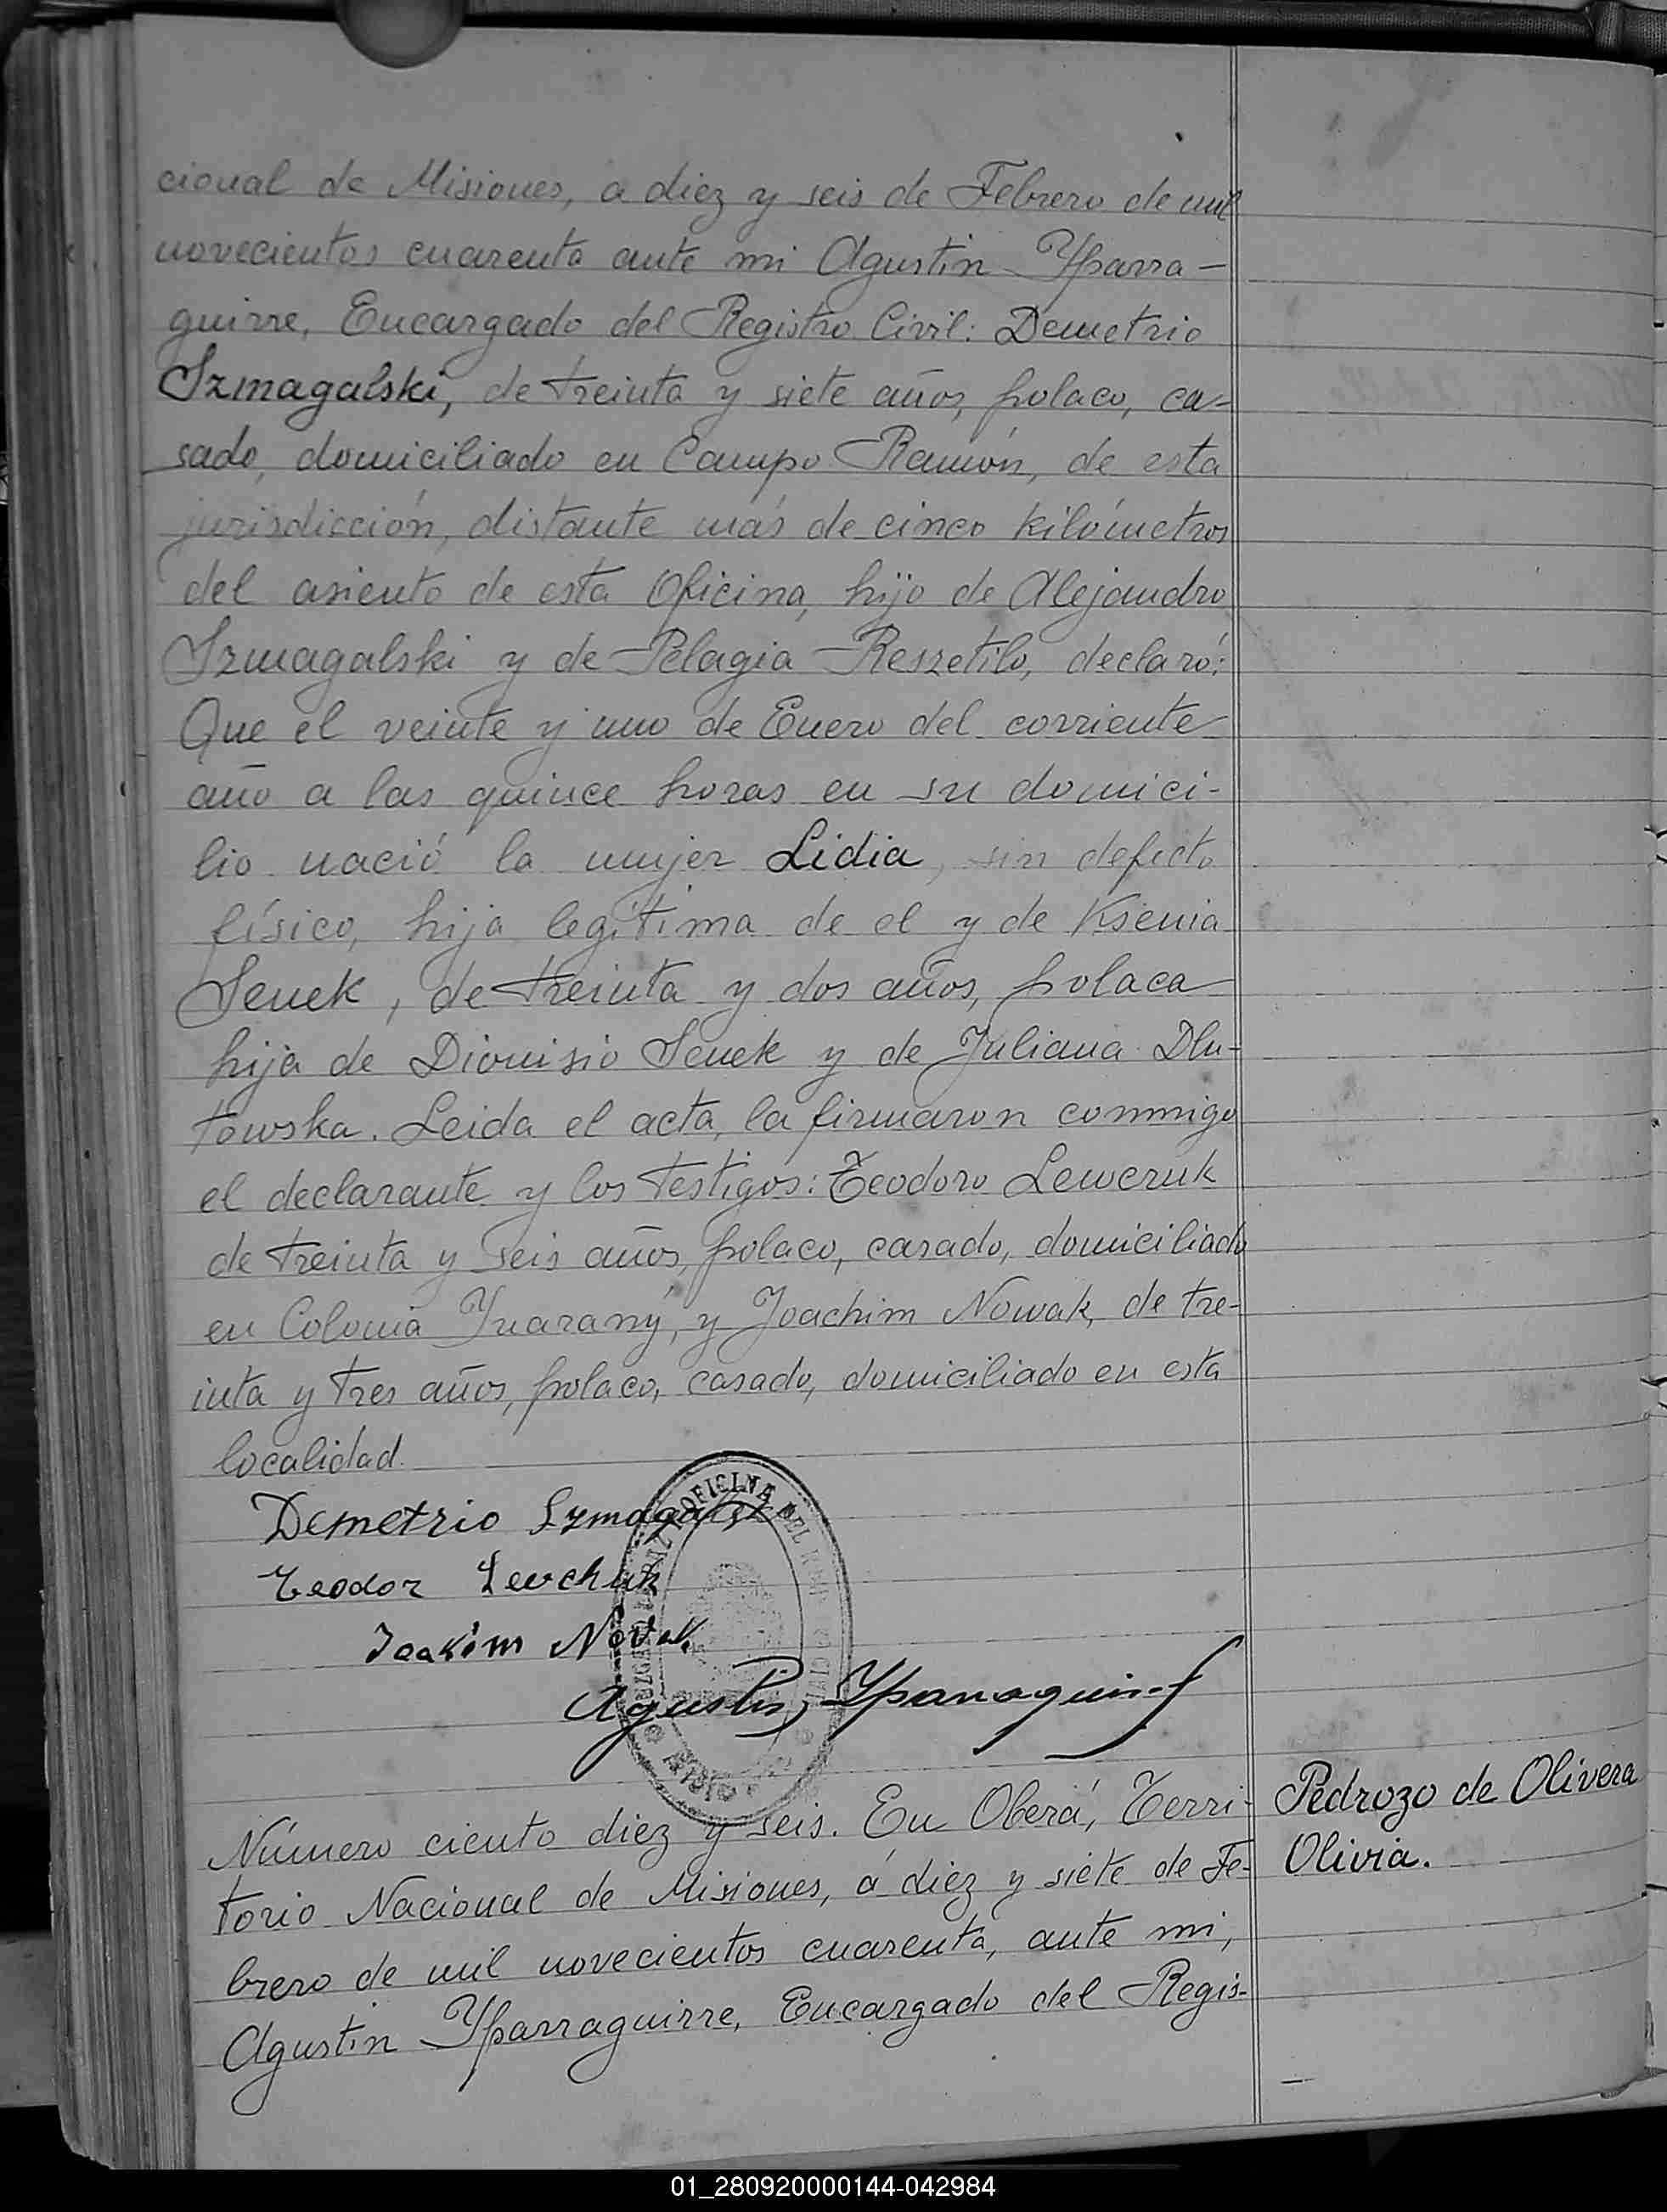 cional de Misiones, a diez y seis de Febrero de mil
novecientos cuarenta ante mi Agustin Yparra-
guirre, Encargado del Registro Civil: Demetrio
Szmagalski, de treinta y siete años, polaco, ca-
sado, domiciliado en Campo Ramón, de esta
jurisdicción, distante más de cinco kilómetros
del asiento de esta Oficina, hijo de Alejandro
Szmagalski y de Pelagia Reszetilo, declaró:
Que el veinte y uno de Enero del corriente
año a las quince horas en su domici-
lio nació la mujer Lidia, sin defecto
físico, hija legítima de el y de Ksenia
Senek, de treinta y dos años, polaca
hija de Dionisio Senek y de Juliana Dlu-
towska. Leida el acta, la firmaron conmigo
el declarante y los testigos: Teodoro Lewczuk
de treinta y seis años, polaco, casado, domiciliado
en Colonia Yuarany, y Joachim Nowak, de tre-
inta y tres años, polaco, casado, domiciliado en esta
localidad.
Demetrio Szmagalski
Teodor Levchuk
Joakim Novak
Agustin Yparraguirre
OFICINA DEL
Número ciento diez y seis. En Oberá, Terri-
torio Nacional de Misiones, á diez y siete de Fe-
brero de mil novecientos cuarenta, ante mi,
Agustin Yparraguirre, Encargado del Regis-
Pedrozo de Olivera
Olivia.
01_280920000144-042984